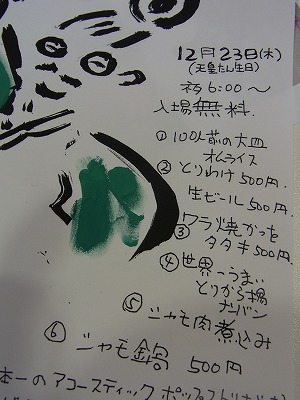 12月23日(木)
(天皇たん生日)
夕方6:00〜
入場無料.
① 100人前の大皿
オムライス
② とりわけ500円.
生ビール500円.
ワラ焼かつを
③ タタキ500円.
④ 世界一うまい
とりから揚
ナンバン
⑤ シャモ肉煮込み
⑥ シャモ鍋 500円
本一のアコースティックポップス